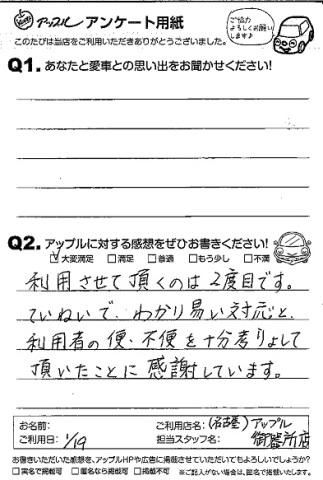 アップル アンケート用紙
このたびは当店をご利用いただきありがとうございました。
ご協力
よろしくお願い
します♪
Q1. あなたと愛車との思い出をお聞かせください!
Q2. アップルに対する感想をぜひお書きください!
☑大変満足 □満足 □普通 □もう少し □不満
利用させて頂くのは2度目です。
ていねいで、わかり易い対応と、
利用者の便、不便を十分考りょして
頂いたことに感謝しています。
お名前:
ご利用店名:(名古屋)アップル
ご利用日: 1/19
担当スタッフ名: 御器所店
お書きいただいた感想を、アップルHPや広告に掲載させていただいてもよろしいでしょうか?
□実名で掲載可 □匿名なら掲載可 □掲載不可 ※ご記入がない場合は、匿名で掲載いたします。